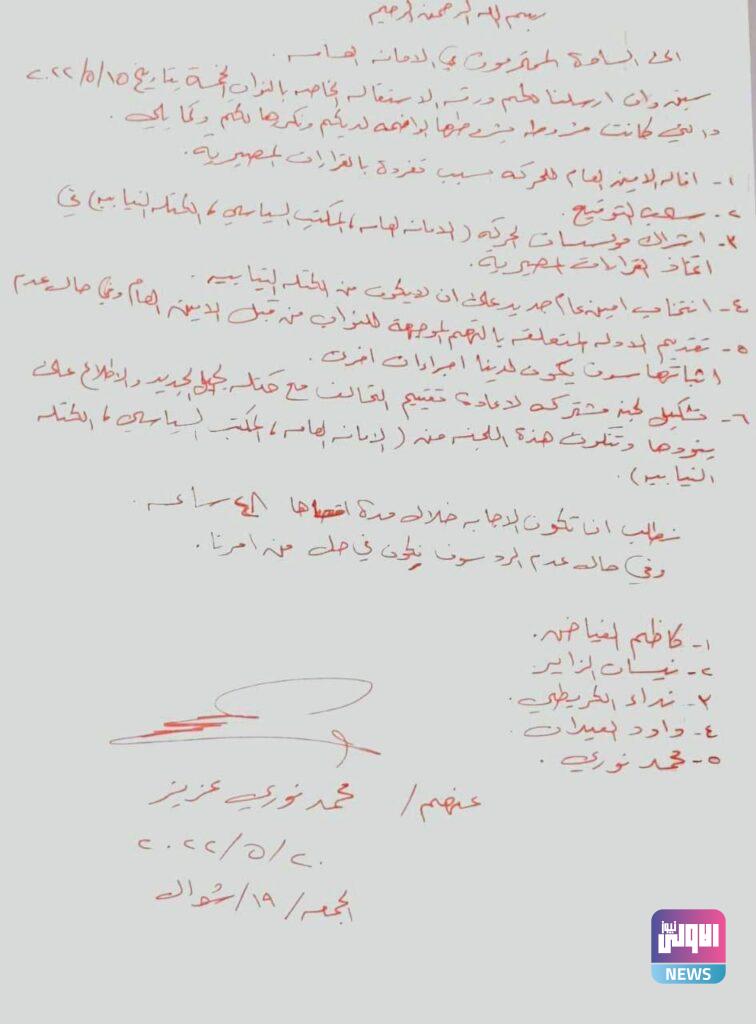 بسم الله الرحمن الرحيم
الى السادة المحترمون في الامانه العامه .
سبق وان ارسلنا لكم ورقه الاستقاله الخاصه بالنواب الخمسة بتاريخ ٢٠٢٢/٥/١٥
والتي كانت مشروطه بشروطها الواضحه لديكم ونكررها لكم وكما يلي .
١- اقاله الامين العام للحركه بسبب تفرده بالقرارات المصيرية .
٢- سحب التوقيع .
٣- اشراك مؤسسات الحركه ( الامانه العامه ، المكتب السياسي ، الكتله النيابيه ) في
اتخاذ القرارات المصيرية .
٤- انتخاب امين عام جديد على ان لايكون من الكتله النيابيه .
٥- تقديم الادله المتعلقه بالتهم الموجهة للنواب من قبل الامين العام وفي حاله عدم
اثباتها سوف يكون لدينا اجراءات اخرى .
٦- تشكيل لجنه مشتركه لاعادة تقييم التحالف مع كتله الجيل الجديد والاطلاع على
بنودها وتتكون هذة اللجنه من ( الامانه العامه ، المكتب السياسي ، الكتله
النيابيه ) .
نطالب ان تكون الاجابه خلال مدة اقصاها ٤٨ ساعه .
وفي حاله عدم الرد سوف نكون في حل من امرنا .
١- كاظم الفياض .
٢- نيسان الزاير .
٣- نداء الكريطي .
٤- داود العيدان .
٥- محمد نوري .
عنهم / محمد نوري عزيز
٢٠٢٢/٥/٢٠
الجمعه / ١٩ / شوال
الاولى نيوز
NEWS